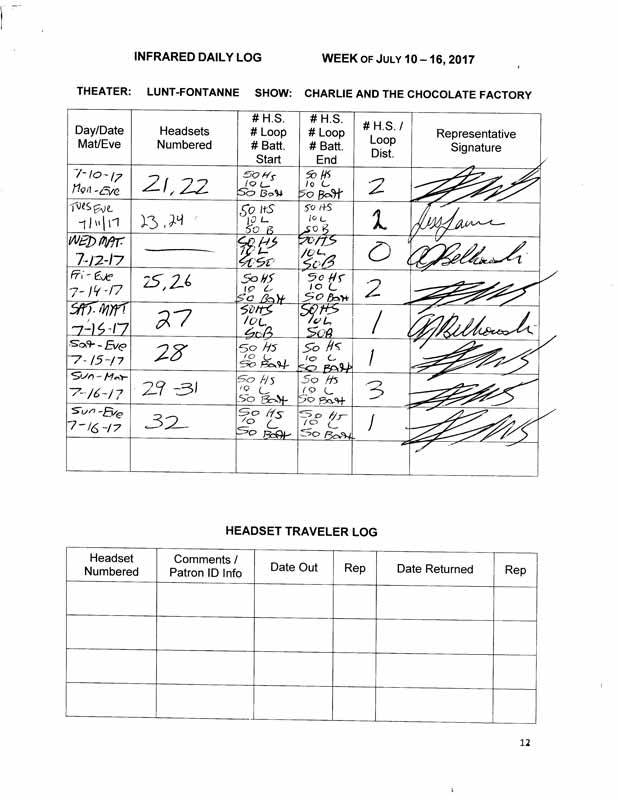 INFRARED DAILY LOG WEEK OF JULY 10 – 16, 2017
THEATER: LUNT-FONTANNE SHOW: CHARLIE AND THE CHOCOLATE FACTORY
Day/Date Mat/Eve
Headsets Numbered
# H.S. # Loop # Batt. Start
# H.S. # Loop # Batt. End
# H.S. / Loop Dist.
Representative Signature
7-10-17 Mon-Eve
21,22
50 HS 10 L 50 Batt
50 HS 10 L 50 Batt
2
TUES EVE 7/11/17
23,24
50 HS 10 L 50 B
50 HS 10 L 50 B
2
WED MAT. 7-12-17
50 HS 10 L
50 HS 10 L 50 B
0
Fri-Eve 7-14-17
25,26
50 HS 10 L 50 Batt
50 HS 10 L 50 Batt
2
SAT. MAT 7-15-17
27
50 HS 10 L 50 B
50 HS 10 L 50 B
1
Sat-Eve 7-15-17
28
50 HS 10 L 50 Batt
50 HS 10 L 50 Batt
1
Sun-Mat 7-16-17
29-31
50 HS 10 L 50 Batt
50 HS 10 L 50 Batt
3
Sun-Eve 7-16-17
32
50 HS 10 L 50 Batt
50 HS 10 L 50 Batt
1
HEADSET TRAVELER LOG
Headset Numbered
Comments / Patron ID Info
Date Out
Rep
Date Returned
Rep
12